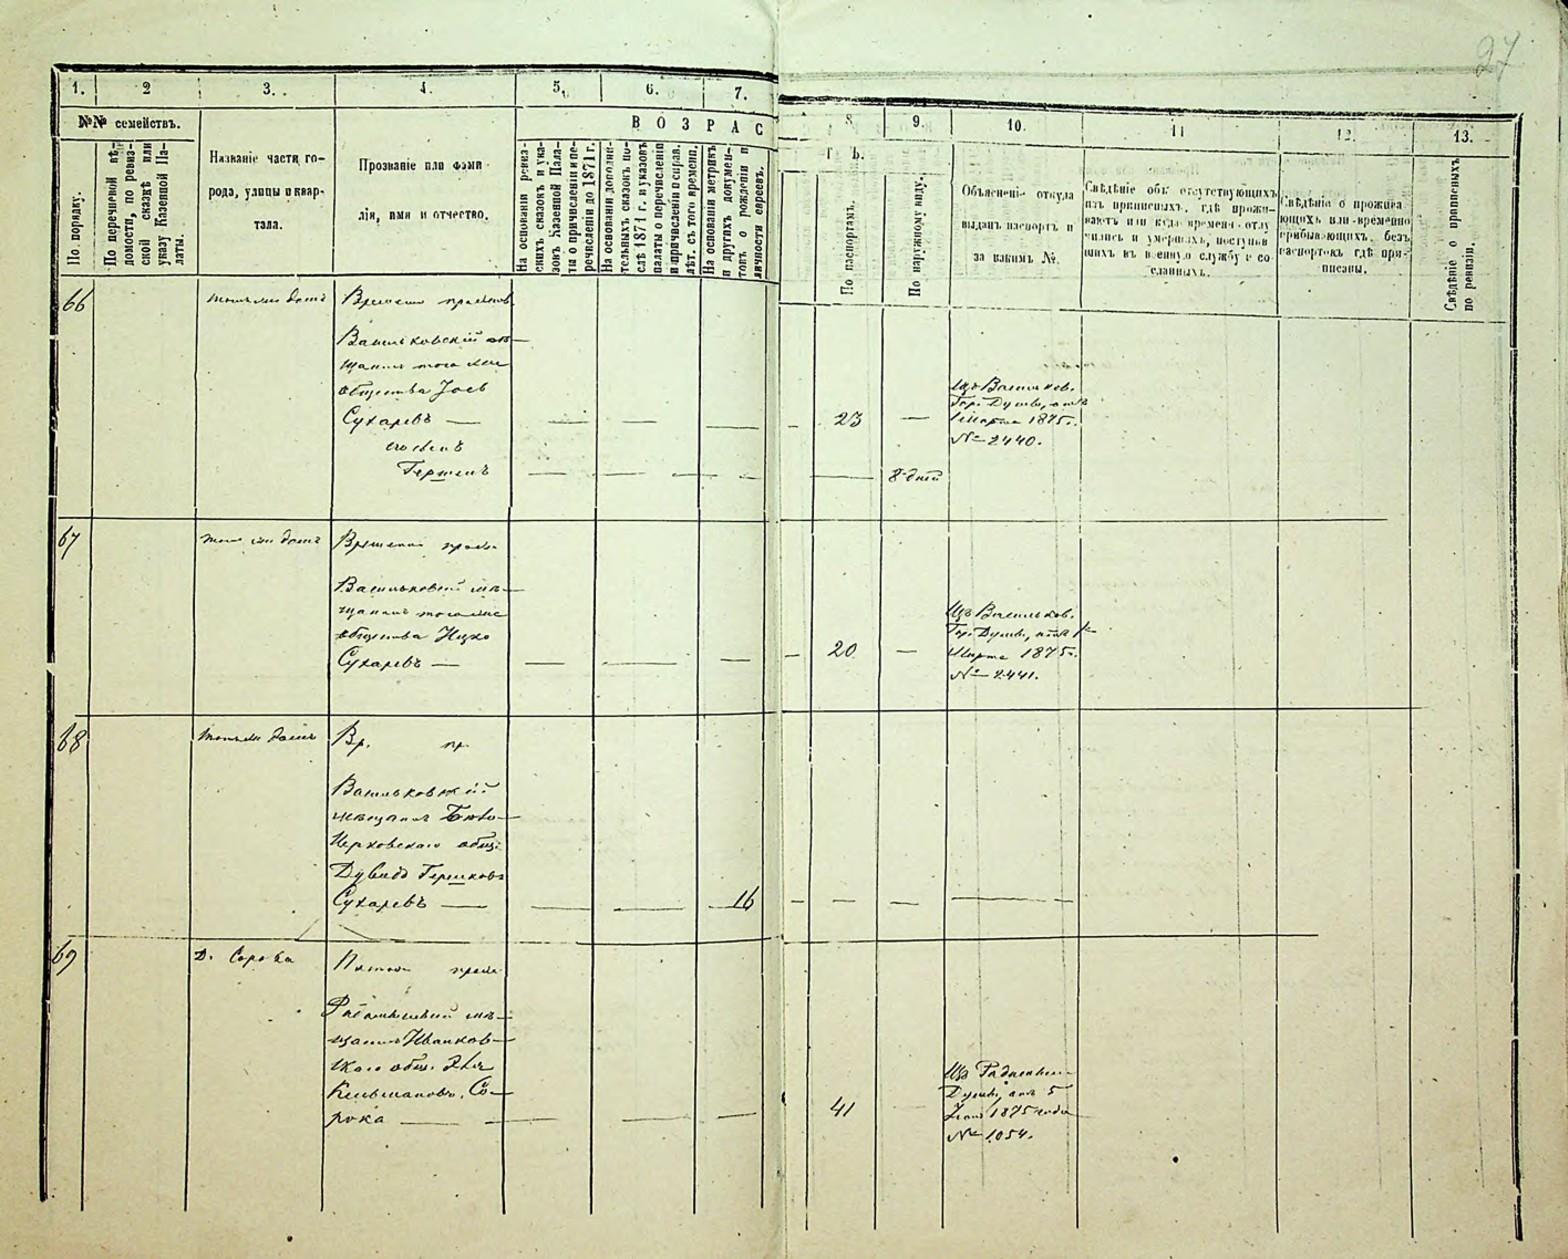 27
1. 2 3. 4. 5. 6. 7. 8. 9. 10. 11 12. 13.
№№ семействъ.
По порядку.
По перечневой вѣ-
домости, по ревиз-
ской сказкѣ или
указу Казенной Па-
латы.
Названіе части го-
рода, улицы и квар-
тала.
Прозваніе или фами
лія, имя и отчество.
ВОЗРАСТЪ.
На основаніи ревиз-
скихъ сказокъ и ука-
зовъ Казенной Пала-
ты о причисленіи и пе-
речисленіи до 1871 г.
На основаніи дополни-
тельныхъ сказокъ по-
слѣ 1871 г. и указовъ
палаты о перечисленіи
и причисленіи и справ.
лѣт. съ того времени.
На основаніи метрикъ
и другихъ докумен-
товъ о рожденіи и
личности евреевъ.
По паспортамъ.
По наружному виду.
Объясненіе откуда
выданъ паспортъ и
за какимъ №.
Свѣдѣніе объ отсутствующихъ
изъ приписныхъ, гдѣ прожи-
ваютъ или куда времен. отлу
чились и умершихъ, поступив
шихъ въ военную службу и со
сланныхъ.
Свѣдѣніе о прожива
ющихъ или временно
прибывающихъ безъ
паспортовъ гдѣ при-
писаны.
Свѣдѣніе о приписныхъ
по ревизіи.
66
тотъ же домъ
Временно
Васильковскій мѣ-
щанинъ того же
общества Іосъ
Сухаревъ —
23
Изъ Васильков.
Гор. Думы, отъ
1 Марта 1875 г.
№ 2440.
сынъ
Гершенъ
8 дней
67
тотъ же домъ
Временно
Васильковскій мѣ-
щанинъ того же
общества Ицко
Сухаревъ —
20
Изъ Васильков.
Гор. Думы, отъ 1
Марта 1875 г.
№ 2441.
68
тотъ же домъ
Вр. пр.
Васильковскій
мѣщанинъ Бѣло-
Церковскаго общ.
Дувидъ Гершковъ
Сухаревъ —
16
69
Д. Сорока
Радомысльскій мѣ-
щанинъ Иванков-
скаго общ.
Кельмановъ Со-
рока —
41
Изъ Радомысл.
Думы, отъ 5
1875 года
№ 1054.